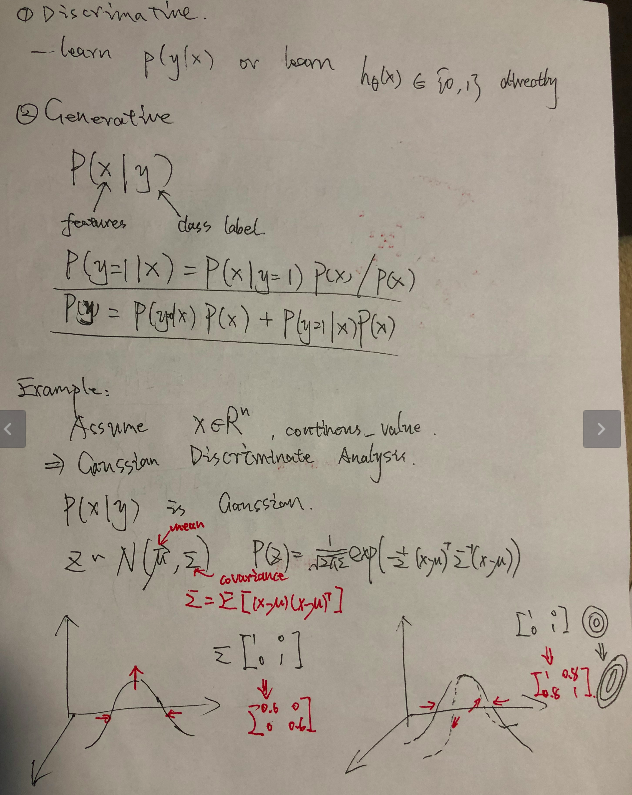 ① Discrimative.
— learn p(y|x) or learn hθ(x) ∈ {0,1} directly
② Generative
P(x|y)
features class label
P(y=1|x) = P(x|y=1) P(x) / P(x)
P(y) = P(y=0|x) P(x) + P(y=1|x) P(x)
Example:
Assume x∈Rⁿ, continous_value.
⇒ Gaussian Discriminate Analysis.
P(x|y) is Gaussian.
mean
z ~ N(μ, Σ) P(z) = 1/√2πΣ exp(-½ (x-μ)ᵀ Σ⁻¹ (x-μ))
covariance
Σ = Σ[(x-μ)(x-μ)ᵀ]
Σ [1 0; 0 1]
⇓
[0.6 0; 0 0.6]
[1 0; 0 1]
⇓ ⇓
[1 0.8; 0.8 1]